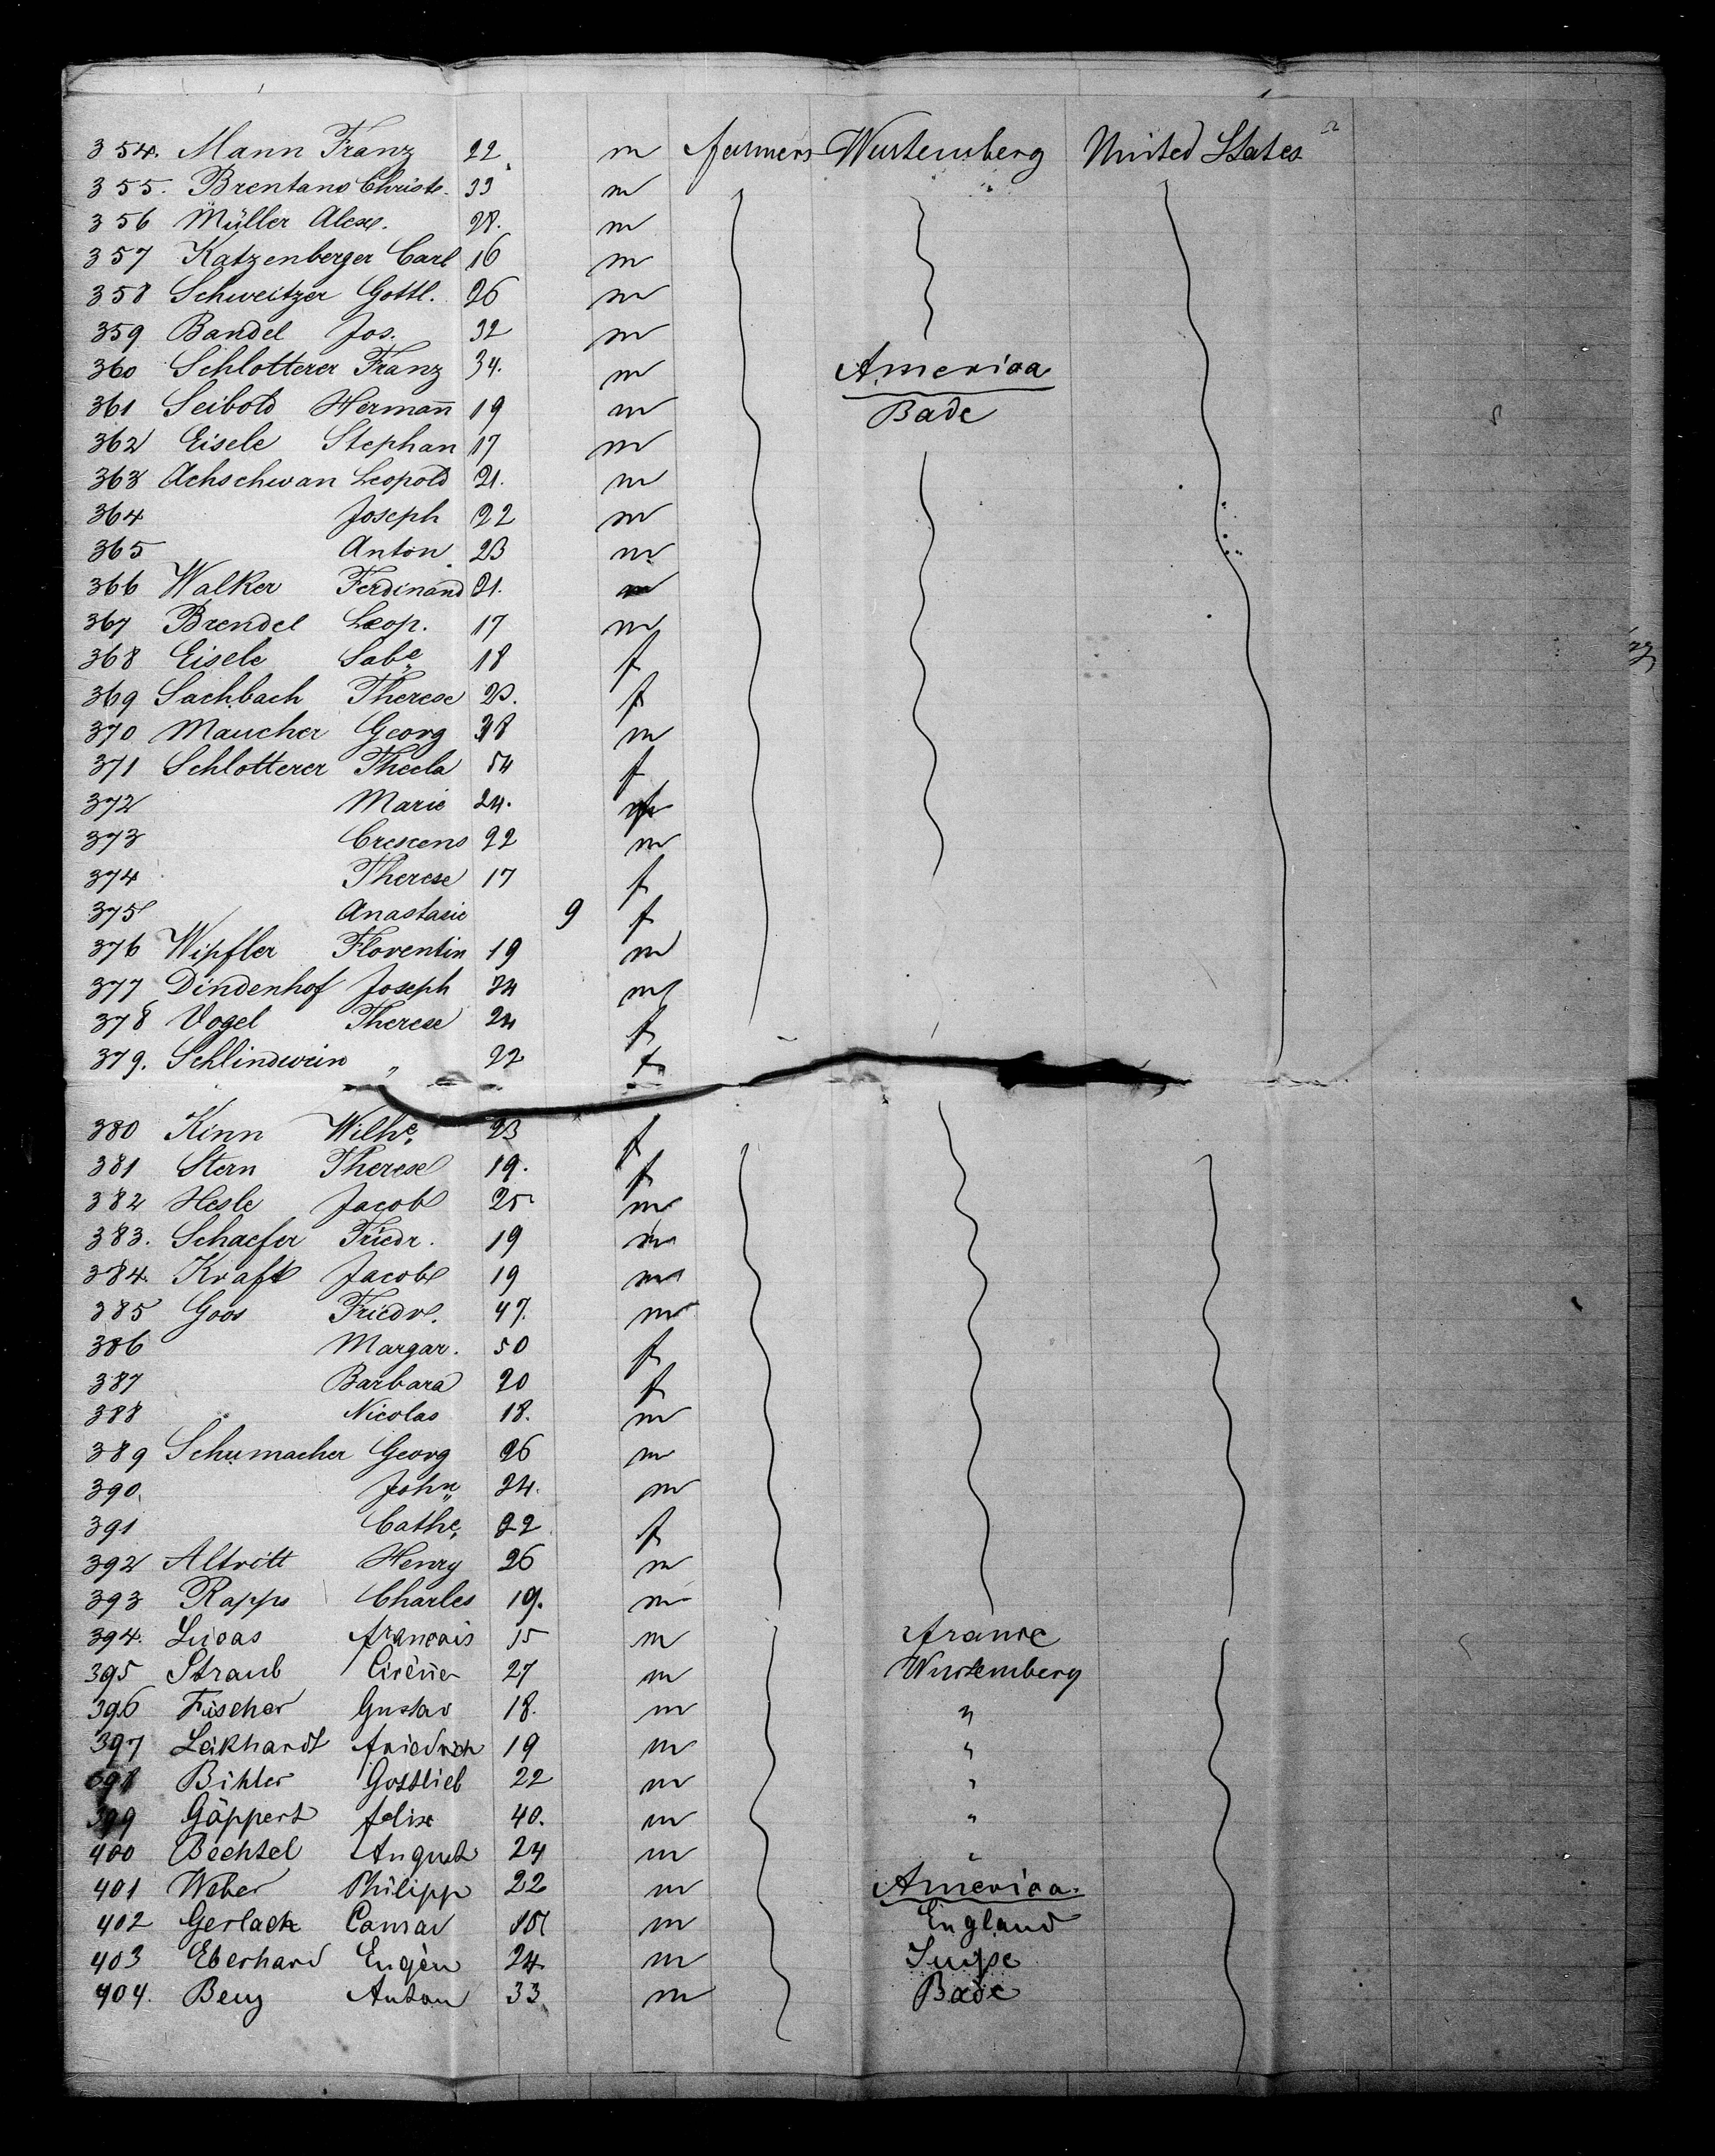 354. Mann Franz 22 m farmers Wurtemberg United States
355. Brentano Christ. 33 m
356 Müller Alex. 28. m
357 Katzenberger Carl 16 m
358 Schweitzer Gottl. 26 m
359 Bandel Jos. 32 m
360 Schlotterer Franz 34. m America
361 Seibold Hermañ 19 m Bade
362 Eisele Stephan 17 m
363 Achschwan Leopold 21. m
364 Joseph 22 m
365 Anton 23 m
366 Walker Ferdinand 21. m
367 Brendel Leop. 17 m
368 Eisele Sabe 18 f
369 Sachbach Therese f
370 Maucher Georg 38 m
371 Schlotterer Thecla 54 f
372 Marie 24. f
373 Crescens 22 m
374 Therese 17 f
375 Anastasie 9 f
376 Wipfler Florentin 19 m
377 Dindenhof Joseph 24 m
378 Vogel Therese 24 f
379. Schlindwein " 22 f
380 Kinn Wilhe 23 f
381 Stern Therese 19. f
382 Hesle Jacob 25 m
383. Schaefer Friedr. 19 m
384. Kraft Jacob 19 m
385 Goos Friedr. 47. m
386 Margar. 50 f
387 Barbara 20 f
388 Nicolas 18. m
389 Schumacher Georg 26 m
390. Johṇ 24. m
391 Cathe 22 f
392 Altritt Henry 26 m
393 Rapps Charles 19. m
394. Lucas francais 15 m france
395 Straub 27 m Wurtemberg
396 Fischer Gustav 18. m "
397 Leikhardt friedrich 19 m "
398 Bihler Gottlieb 22 m "
399 Göppert felix 40. m "
400 Bechtel August 24 m "
401 Weber Philipp 22 m America.
402 Gerlach Conrad m England
403 Eberhard Eugèn 24 m Suisse
404. Benz Anton 33 m Bade